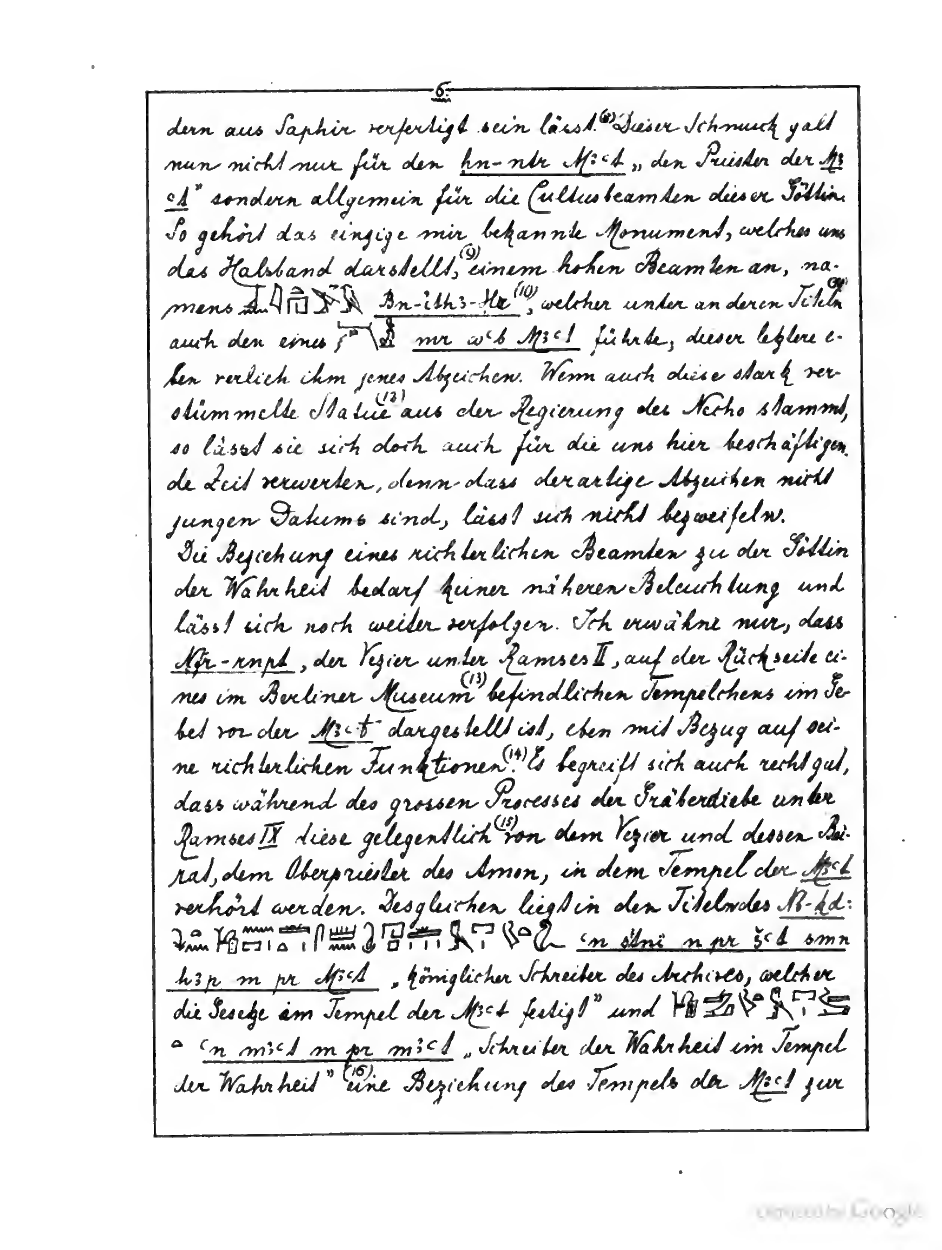 6.
dern aus Saphir verfertigt sein lässt.(8) Dieser Schmuck galt
nun nicht nur für den hn-ntr M3ct „den Priester der M3
ct" sondern allgemein für die Cultusbeamten dieser Göttin.
So gehört das einzige mir bekannte Monument, welches uns
das Halsband darstellt,(9) einem hohen Beamten an, na-
mens Bn-ith3-Hr(10), welcher unter anderen Titeln
auch den eines mr wcb M3ct führte, dieser letztere e-
ben verlieh ihm jenes Abzeichen. Wenn auch diese stark ver-
stümmelte Statue(12) aus der Regierung des Necho stammt,
so lässt sie sich doch auch für die uns hier beschäftigen
de Zeit verwerten, denn dass derartige Abzeichen nicht
jungen Datums sind, lässt sich nicht bezweifeln.
Die Beziehung eines richterlichen Beamten zu der Göttin
der Wahrheit bedarf keiner näheren Beleuchtung und
lässt sich noch weiter verfolgen. Ich erwähne nur, dass
Nfr-rnpt, der Vezier unter Ramses II, auf der Rückseite ei-
nes im Berliner Museum(13) befindlichen Tempelchens im Ge-
bet vor der M3ct dargestellt ist, eben mit Bezug auf sei-
ne richterlichen Funktionen.(14) Es begreift sich auch recht gut,
dass während des grossen Processes der Gräberdiebe unter
Ramses IX diese gelegentlich(15) von dem Vezier und dessen Bei-
rat, dem Oberpriester des Amon, in dem Tempel der M3ct
verhört werden. Desgleichen liegt in den Titeln des Nb-kd:
cn stni n pr šct smn
h3p m pr M3ct „königlicher Schreiber des Archives, welcher
die Gesetze im Tempel der M3ct festigt" und
cn m3ct m pr m3ct „Schreiber der Wahrheit im Tempel
der Wahrheit"(16) eine Beziehung des Tempels der M3ct zur
Digitized by Google